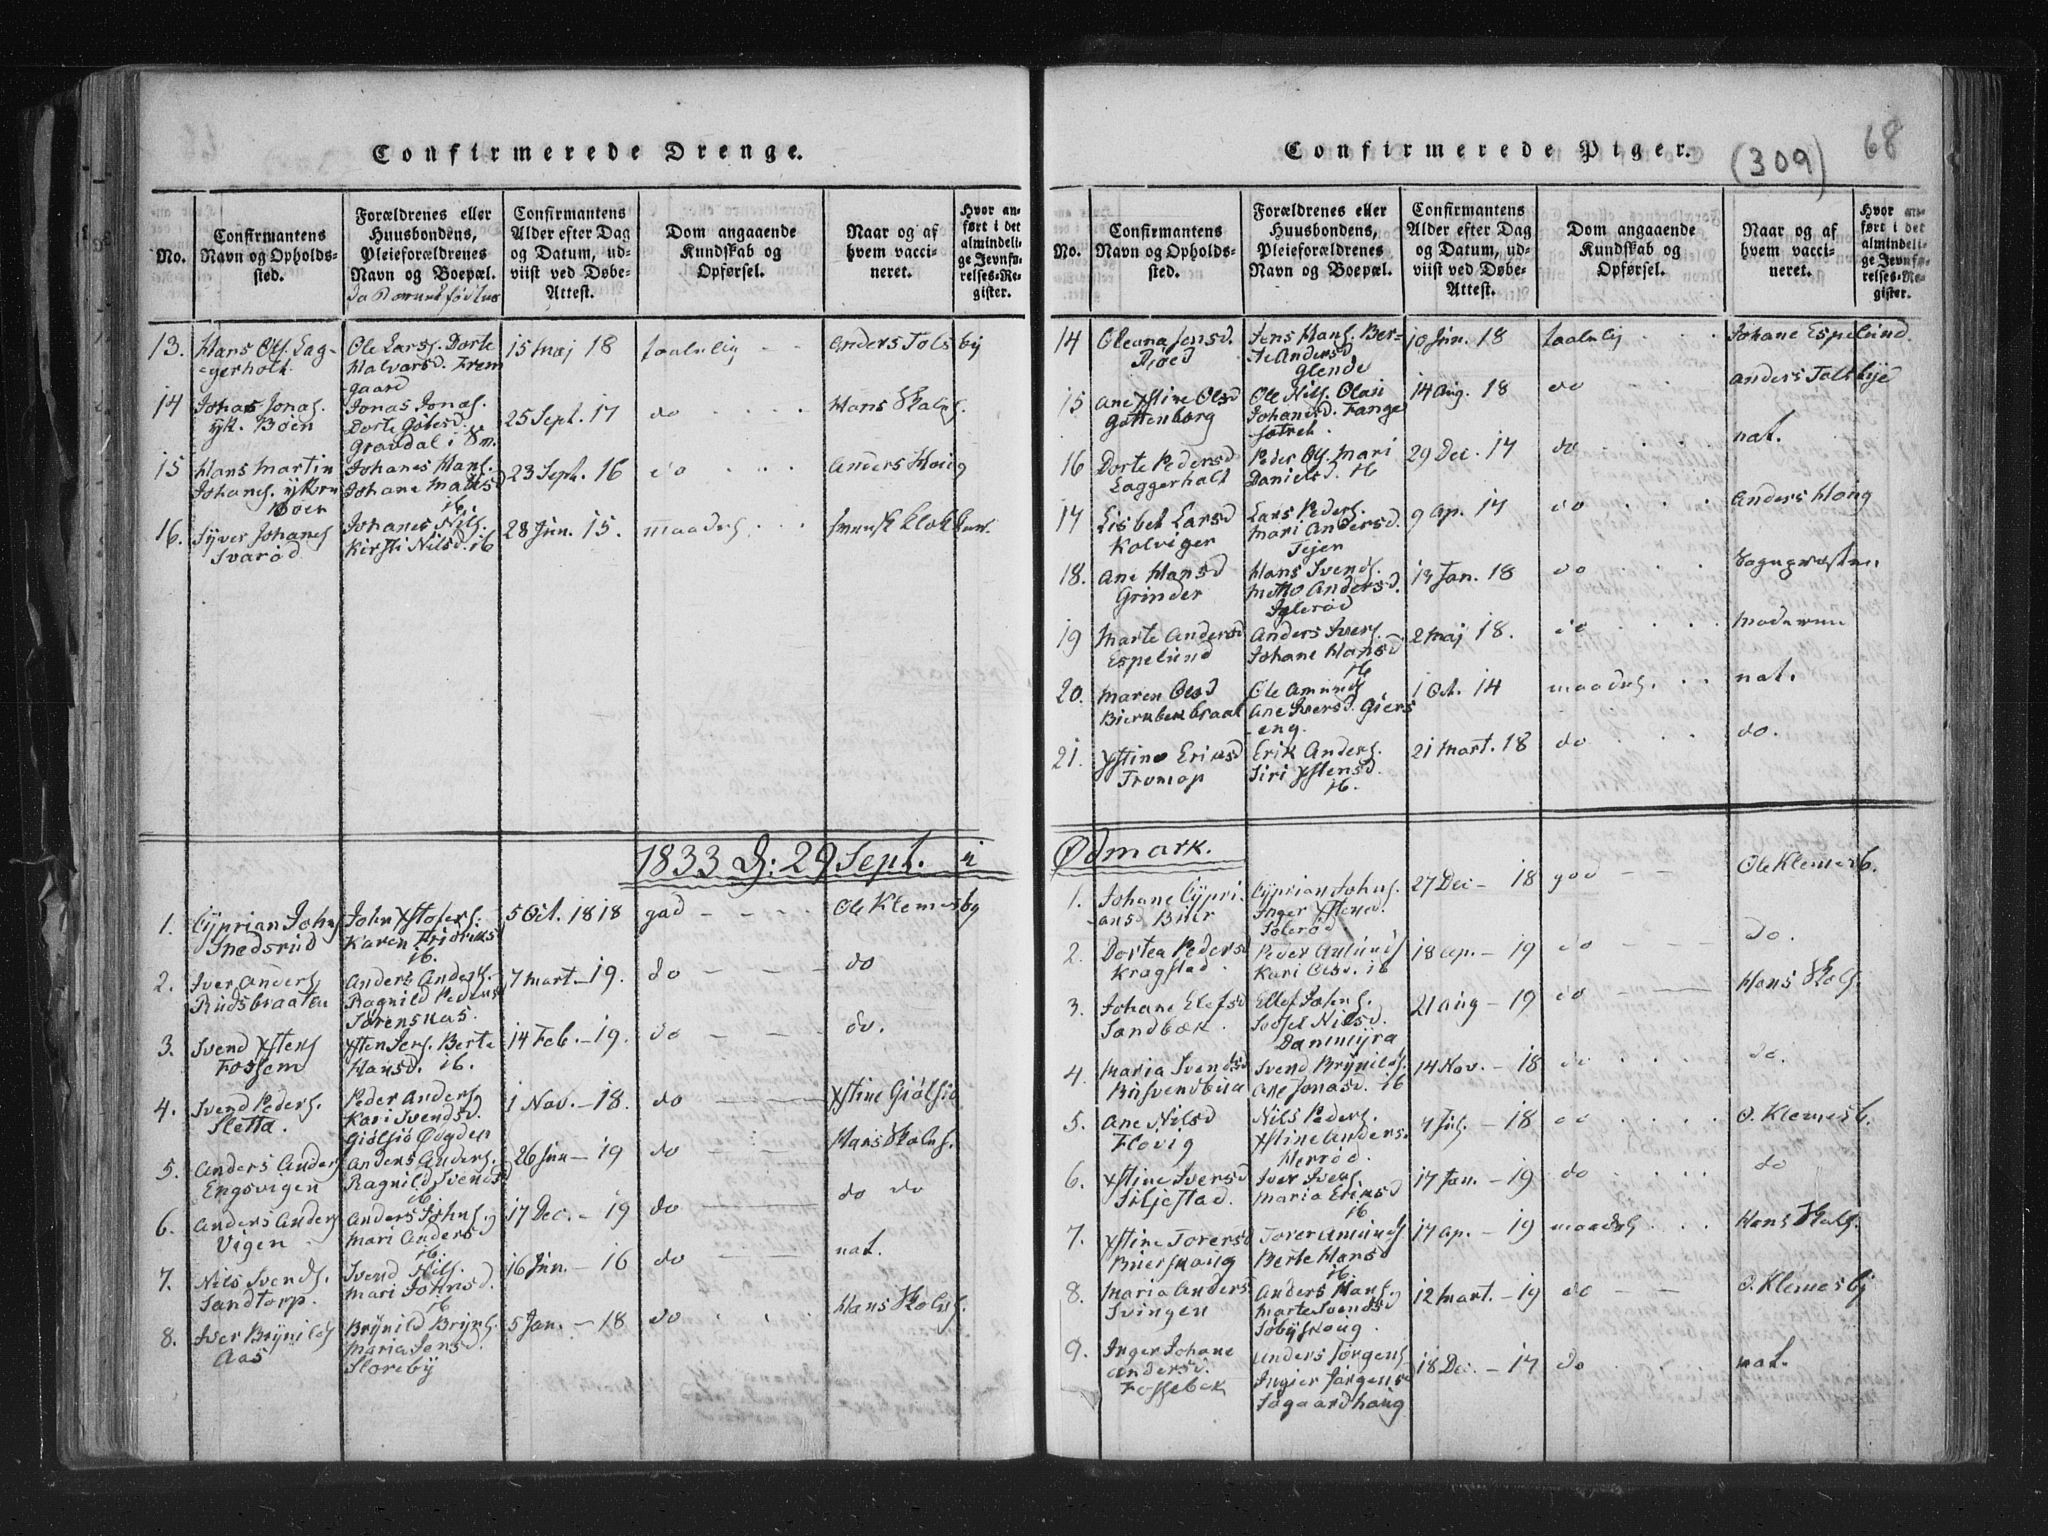 Confirmerede Drenge.
No.
Confirmantens
Navn og Opholds-
sted.
Forældrenes eller
Huusbondens,
Pleieforældrenes
Navn og Boepæl.
Confirmantens
Alder efter Dag
og Datum, ud-
viist ved Døbe-
Attest.
Dom angaaende
Kundskab og
Opførsel.
Naar og af
hvem vacci-
neret.
Hvor an-
ført i det
almindeli-
ge Jevnfø-
relses-Re-
gister.
13. Hans Ols. Lag-
gerholt
Ole Lars. Dorte
Halvarsd. Frem
gaard
15 Maj 18
taalelig
Anders Tolsby
14 Johas Jonas.
yk. Böen
Jonas Jonas.
Dorte
Gravdal i Sm.
25 Sept. 17
do
Hans Skols.
15 Hans Martin
Johans. yttre
Böen
Johanes Hans.
Johane Matisd
ib.
23 Sept. 16
do
Anders Houg
16. Syver Johans
Svaröd
Johanes Nils.
Kirsti Nilsd. ib
28 Jun. 15.
maadel
1833 D: 29 Sept. i
1. Cyprian Johns
Snedsrud
John Xstofers.
Karen Fridriks
ib.
5 Oct. 1818
god
Ole Klemesby
2. Iver Anders
Rudsbraaten
Anders Anders.
Ragnild Peders
Sørensnas.
7 Mart. - 19.
do
do
3. Svend Xstens
Fossem
Xsten Sers. Berte
Hansd. ib.
14 Feb. - 19.
do
do.
4. Svend Peders.
Sletta.
Peder Anders
Kari Svendsd.
Giölsiö Ödgden
1 Nov. - 18.
do
Xstine Giölsiö
5. Anders Anders
Engsvigen
Anders Anders.
Ragnild Svendsd
ib
26 Jun - 19
do
Hans Skols.
6. Anders Anders
Vigen
Anders Johns.
Mari Anders
ib
17 Dec. - 19
do
do do
7. Nils Svends.
Sandtorp.
Svend Nils.
Mari Johnsd.
ib
16 Jun. - 16
do
nat.
8. Iver Brynilds
Aas
Brynild Bryns.
Maria Jensd.
Storeby
5 Jan. - 18
do
Hans Skols.
Confirmerede Piger.
(309)
68
No.
Confirmantens
Navn og Opholds-
sted.
Forældrenes eller
Huusbondens,
Pleieforældrenes
Navn og Boepæl.
Confirmantens
Alder efter Dag
og Datum, ud-
viist ved Døbe-
Attest.
Dom angaaende
Kundskab og
Opførsel.
Naar og af
hvem vacci-
neret.
Hvor an-
ført i det
almindeli-
ge Jevnfø-
relses-Re-
gister.
14 Oleana Jensd.
Jens Hans. Ber-
te Andersd
Glende
10 Jun. 18
taalelig
Johane Espelund.
15 Ane Xstine Olsd
Gottenborg
Ole Nils. Olea
Johansd. Fange
sætret.
14 Aug. 18
do
Anders Tolsbye
16 Dorte Pedersd
Laggerholt
Peder Ols. Mari
Danielsd. ib
29 Dec. 17
do
nat.
17 Lisbet Larsd
Kolviger
Lars Peders.
Mari Andersd.
Tejen
9 Ap. 17
do
Anders Houg
18. Ane Hansd
Grinder
Hans Svends.
Andersd.
Igleröd
13 Jan. 18
do
Sognepræsten
19 Marte Andersd
Espelund
Anders Ivers.
Johane Hansd
ib
2 Maj 18.
do
Moderen
20 Maren Olsd
Ole Amunds
Ane Iversd. Giers
eng.
1 Oct. 14
maadel.
nat.
21. Xstine Eriksd
Tromop
Erik Anders.
Siri Xstensd.
ib.
21 Mart. 18
do
do.
Ødmark.
1. Johane Cypri
ansd Biier
Cyprian Johns.
Inger Xstensd.
Soleröd
27 Dec - 18
god
Ole Klemesb.
2. Dortea Pedersd
Kragstad.
Peder Amunds
Kari Olsd. ib
18 Ap. - 19
do
do.
3. Johane Elefsd
Sandbæk.
Ellef Johns.
Nilsd.
Dammyra
21 Aug - 19
do
Hans Skols.
4. Maria Svendsd
Svend Brynilds.
Ane Jonasd. ib
14 Nov. - 18
do
do.
5. Ane Nilsd
Flovig
Nils Peders.
Xstine Anders.
Herröd.
7 Jul. - 18
do
O. Klemesb.
6. Xstine Iversd
Siljestad.
Iver Ivers.
Maria Eriksd
ib
17 Jan. - 19
do
do
7. Xstine Torersd
Biierskoug
Torer Amunds
Berte Hansd
ib
17 Ap. - 19
maadel
Hans Skols.
8. Maria Anders
Svingen
Anders Hans.
Marte Svendsd
Söbyskoug.
12 Mart. - 19
do
O. Klemesby
9. Inger Johane
Andersd.
Fossebek
Anders Jörgens
Ingier Jörgens
Sögaardhoug
18 Dec. - 17
do
nat.